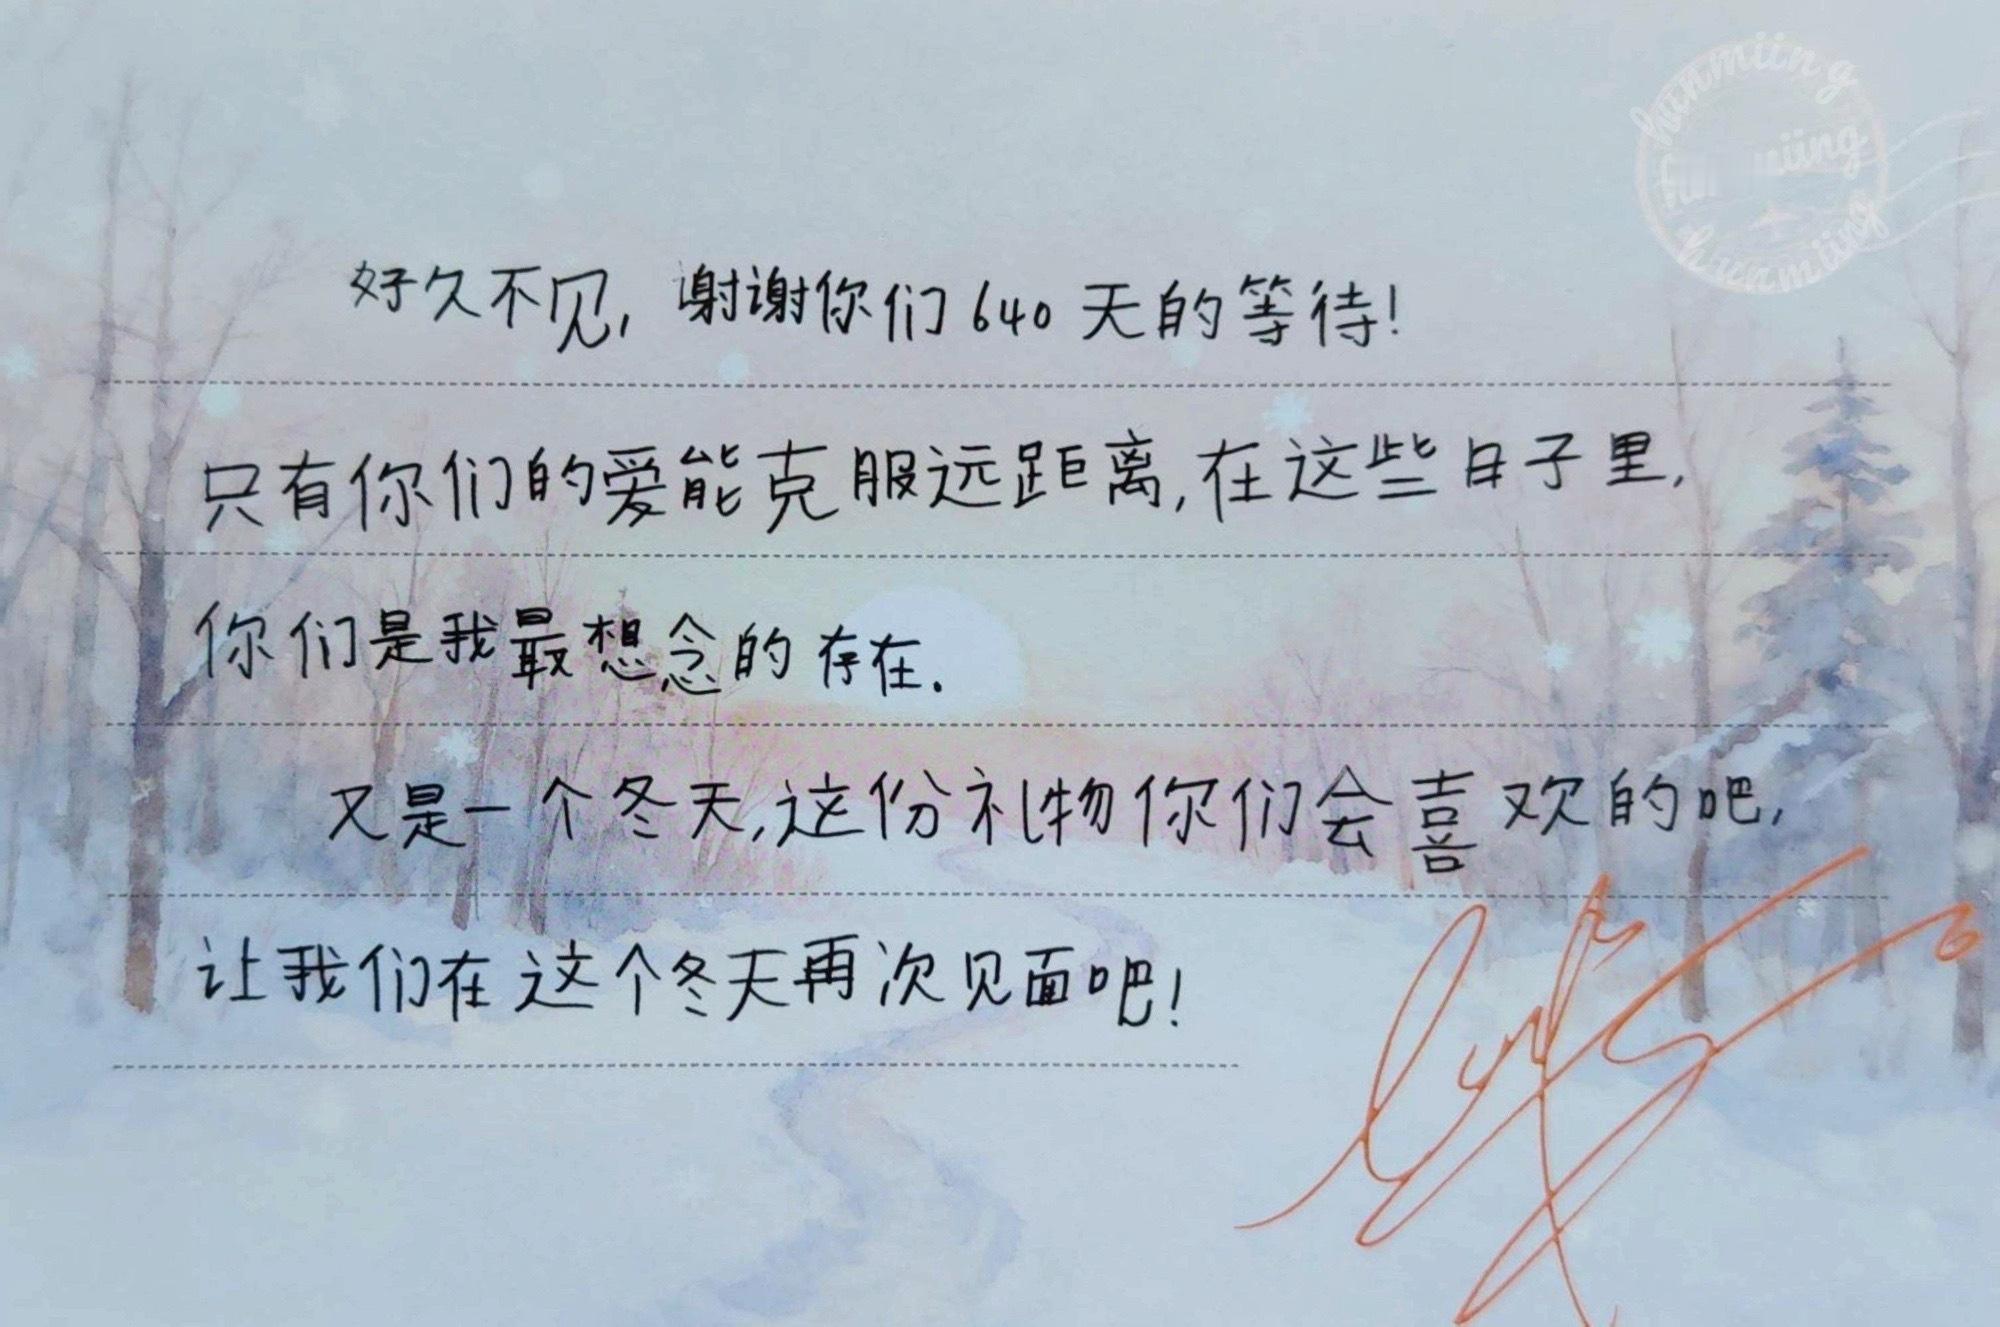 hunmiing
hunmiing
好久不见，谢谢你们640天的等待！
只有你们的爱能克服远距离，在这些日子里，
你们是我最想念的存在．
又是一个冬天，这份礼物你们会喜欢的吧，
让我们在这个冬天再次见面吧！